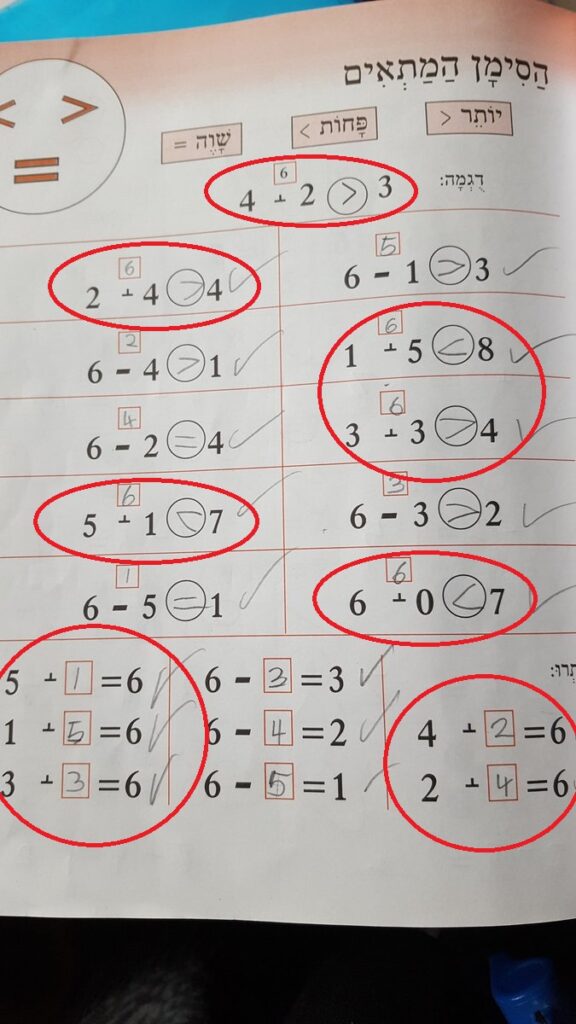 הַסִּימָן הַמַּתְאִים
< >
=
יוֹתֵר >
פָּחוֹת <
שָׁוֶה =
דֻּגְמָה:
6
4 ﬩ 2 > 3
5
6 - 1 > 3
6
2 ﬩ 4 > 4
6
1 ﬩ 5 < 8
2
6 - 4 > 1
6
3 ﬩ 3 > 4
4
6 - 2 = 4
3
6 - 3 > 2
6
5 ﬩ 1 < 7
6
6 ﬩ 0 < 7
1
6 - 5 = 1
4 ﬩ 2 = 6
2 ﬩ 4 = 6
6 - 3 = 3
6 - 4 = 2
6 - 5 = 1
5 ﬩ 1 = 6
1 ﬩ 5 = 6
3 ﬩ 3 = 6